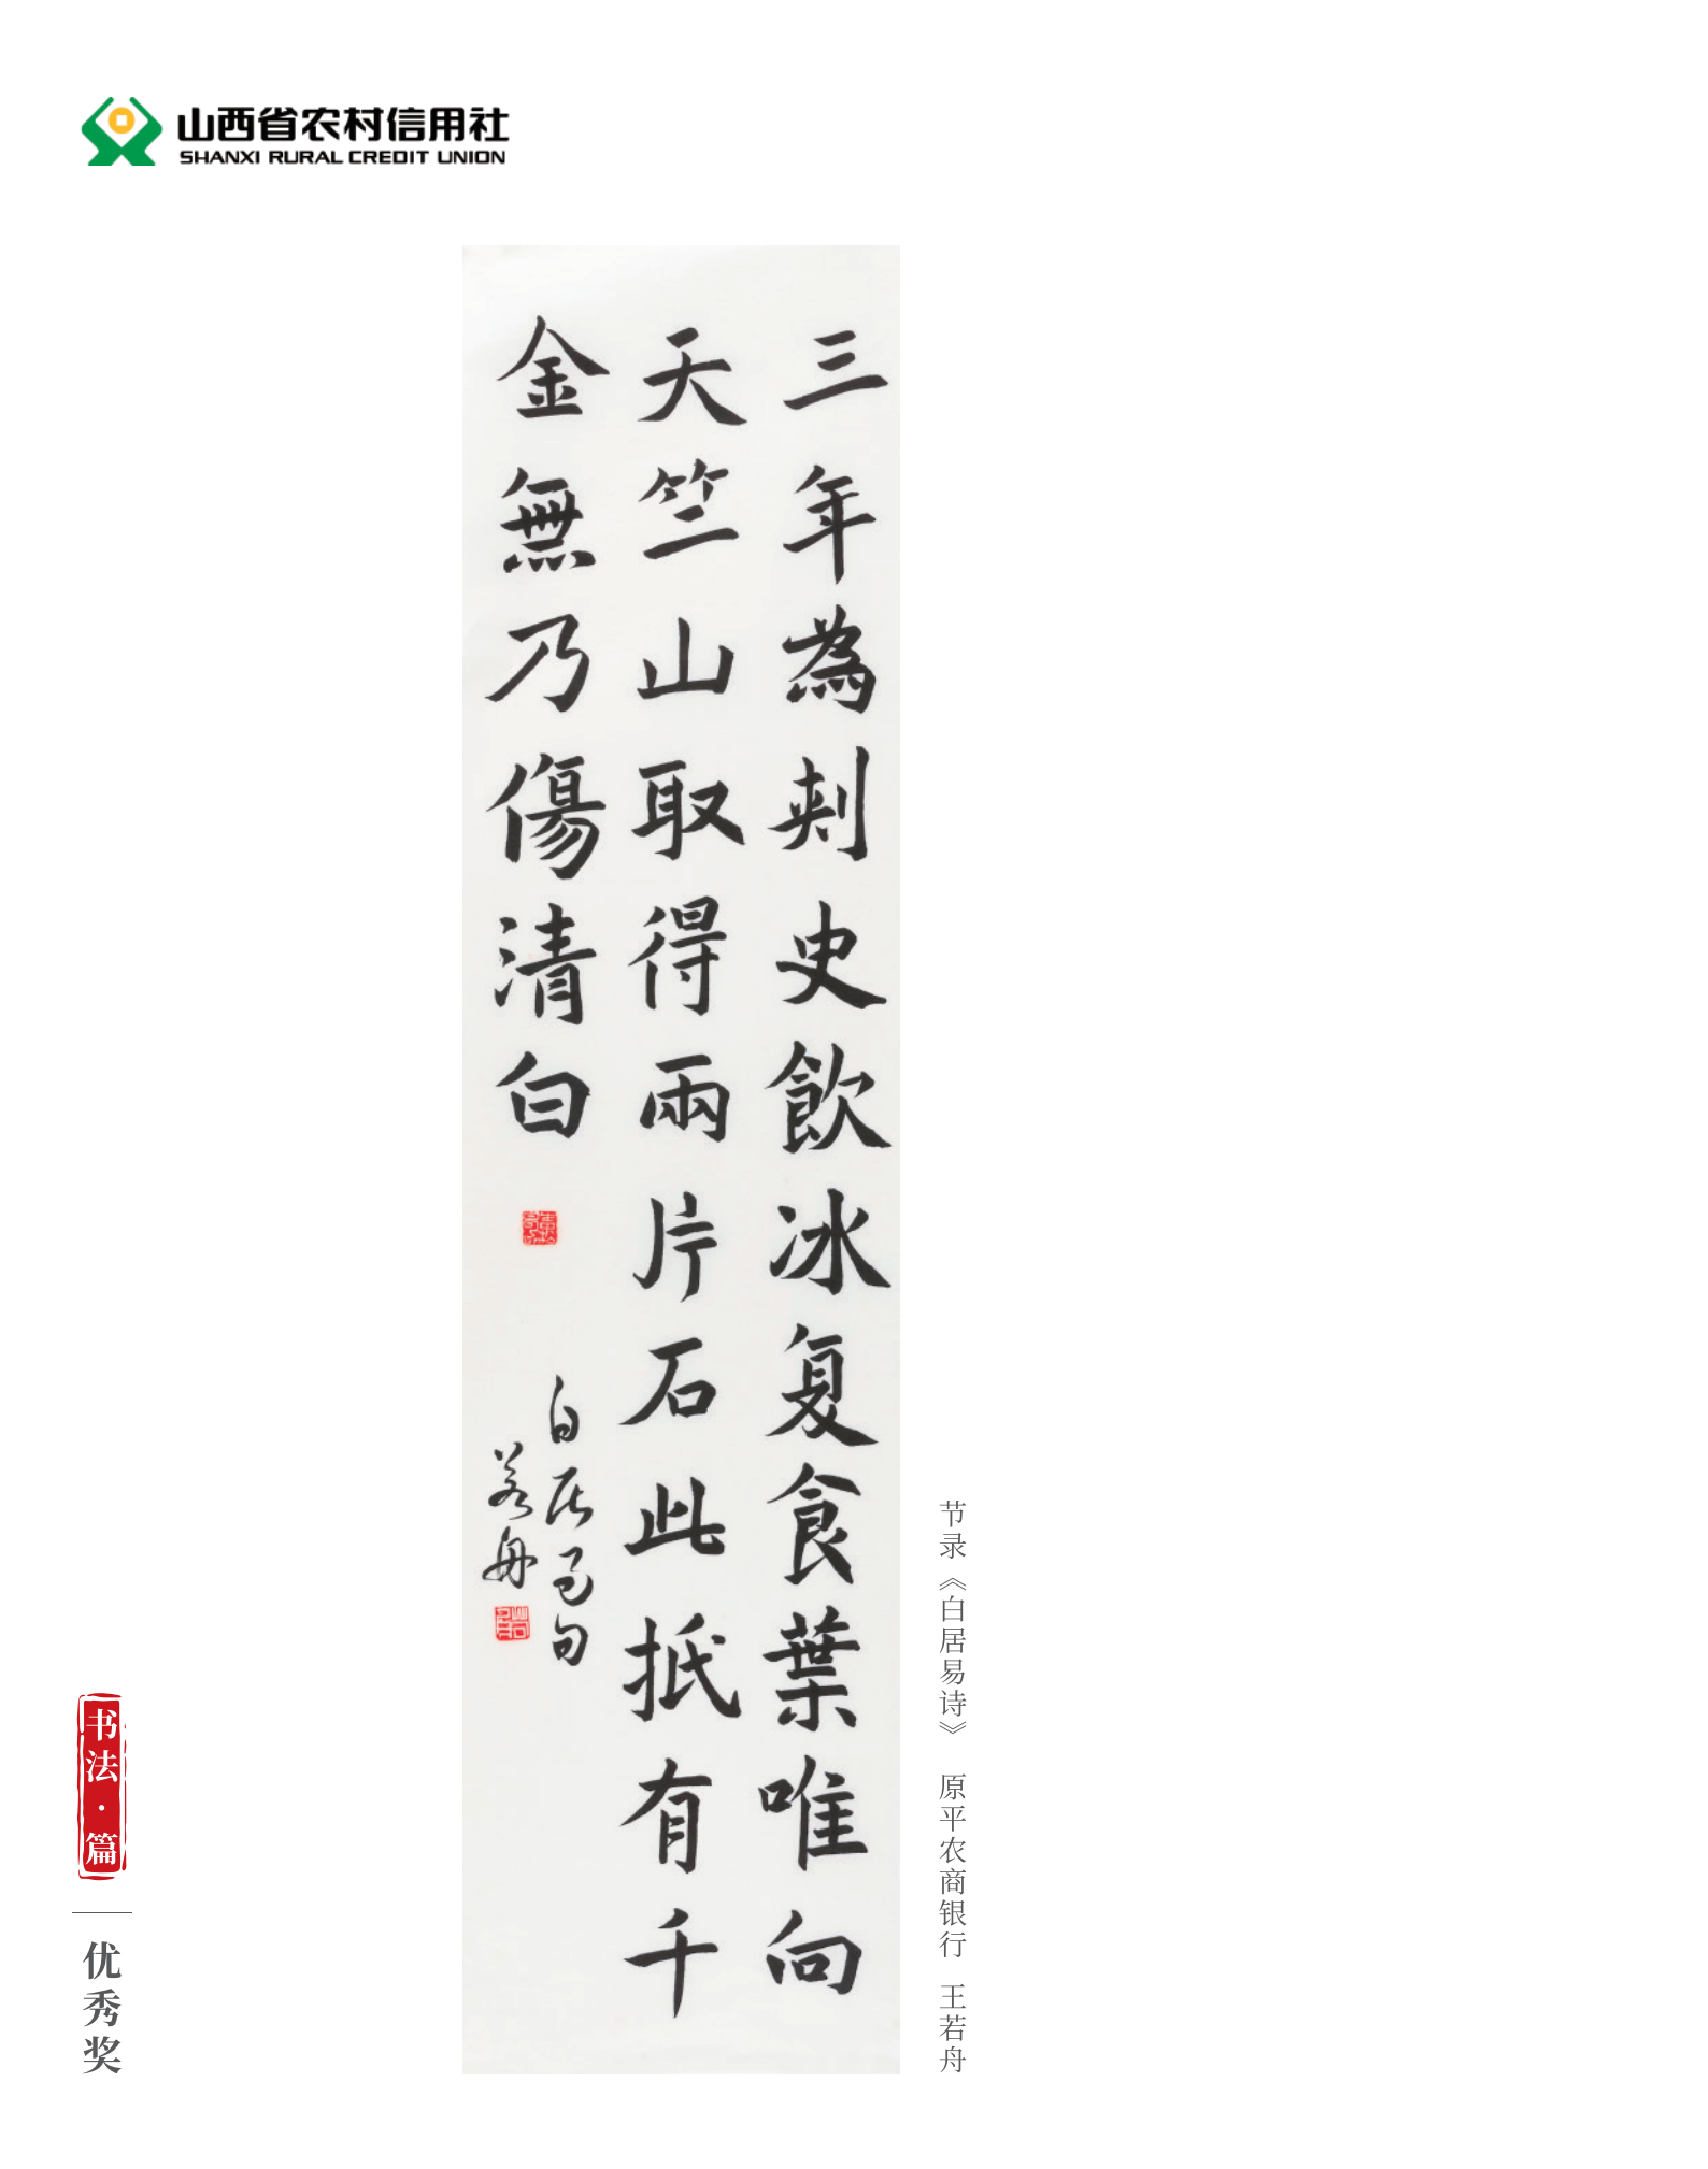 山西省农村信用社
SHANXI RURAL CREDIT UNION
三年為刺史飲冰复食葉唯向
天竺山取得兩片石此抵有千
金無乃傷清白
白居易句
若舟
节录《白居易诗》 原平农商银行 王若舟
书法·篇
优秀奖